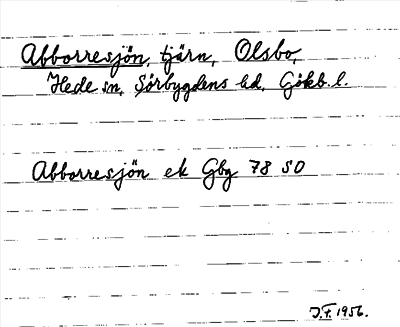 Abborresjön, tjärn, Olsbo,
Hede sn, Sörbygdens hd, Göteb. l.
Abborresjön ek Gbg 78 SO
J.F. 1956.